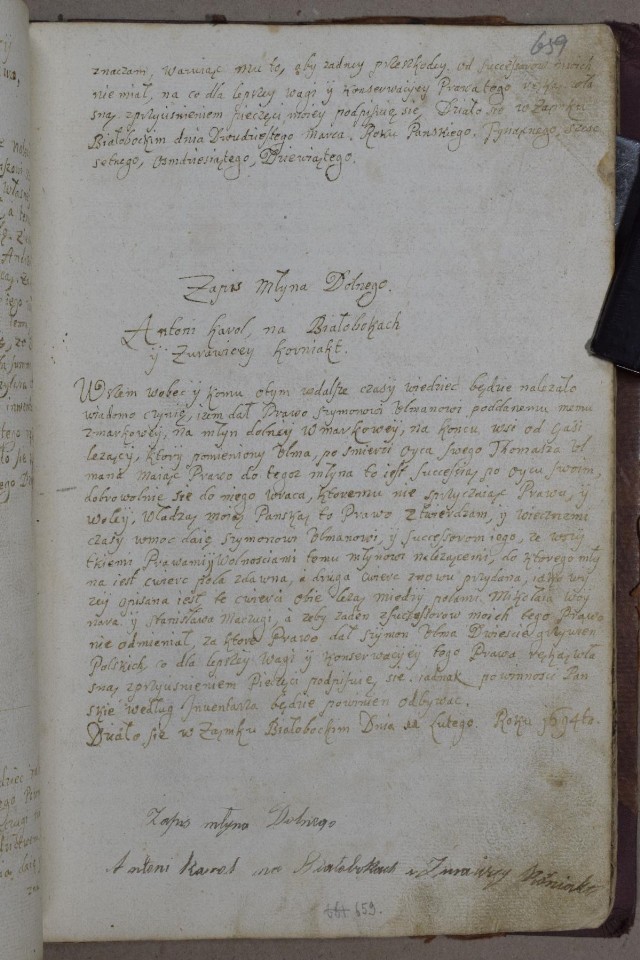 659
znaczam, waruiąc mu to, aby zadney przeszkody od Successorow moich
nie miał, na co dla lepszey wagi y konserwacyey Prawa tego ręką wła
sną zprzyciśnieniem pieczęci moiey podpisuię się, Działo się w Zamku
Białobockim dnia Dwudziestego Marca. Roku Panskiego. Tysiącnego, szesc
setnego, osmdziesiątego, Dziewiątego.
Zapis Młyna Dolnego.
Antoni Karol, na Białobokach
y Zurawicey Korniakt.
Wszem wobec y komu o tym wdalsze czasy wiedziec będzie nalezało
wiadomo czynię, izem dał Prawo Szymonowi Ulmanowi poddanemu memu
zmarkowey, na młyn dolney w markowey, na koncu wsi od Gaci
lezący, ktory pomieniony Ulma, po smierci oyca swego Thomasza Ul
mana maiąc Prawo do tegoz młyna to iest successią po oycu swoim,
dobrowolnie się do niego wraca, ktoremu nie sprzyczniaiąc Prawu, y
woley, władzą moią Panską to Prawo ztwierdzam, y wiecznemi
czasy wmoc daię, Szymonowi Ulmanowi, y Successorom iego, ze wszy
tkiemi Prawami y Wolnosciami temu młynowi nalezącemi, do ktorego mły
na iest cwierc pola zdawna, a druga cwierc znowu przydana, iako wy
zey opisana iest, te cwierci obie lezą miedzy polami Mikołaia Woy
nara y Stanisława Marługi, a zeby zaden zsuccessorow moich tego Prawa
nie odmieniał, za ktore Prawo dał Szymon Ulma Dwiescie grzywien
Polskich co dla lepszey wagi y konserwacyey tego Prawa ręką wła
sną zprzyciśnieniem Pieczęci podpisuię się. iednak powinnosci Pan
skie według Inventarza będzie powinien odbywac.
Działo się w Zamku Białobockim Dnia Lutego. Roku 1694to.
Zapis młyna Dolnego
Antoni Karol na Białobokach i Zurawicy Korniakt
659.